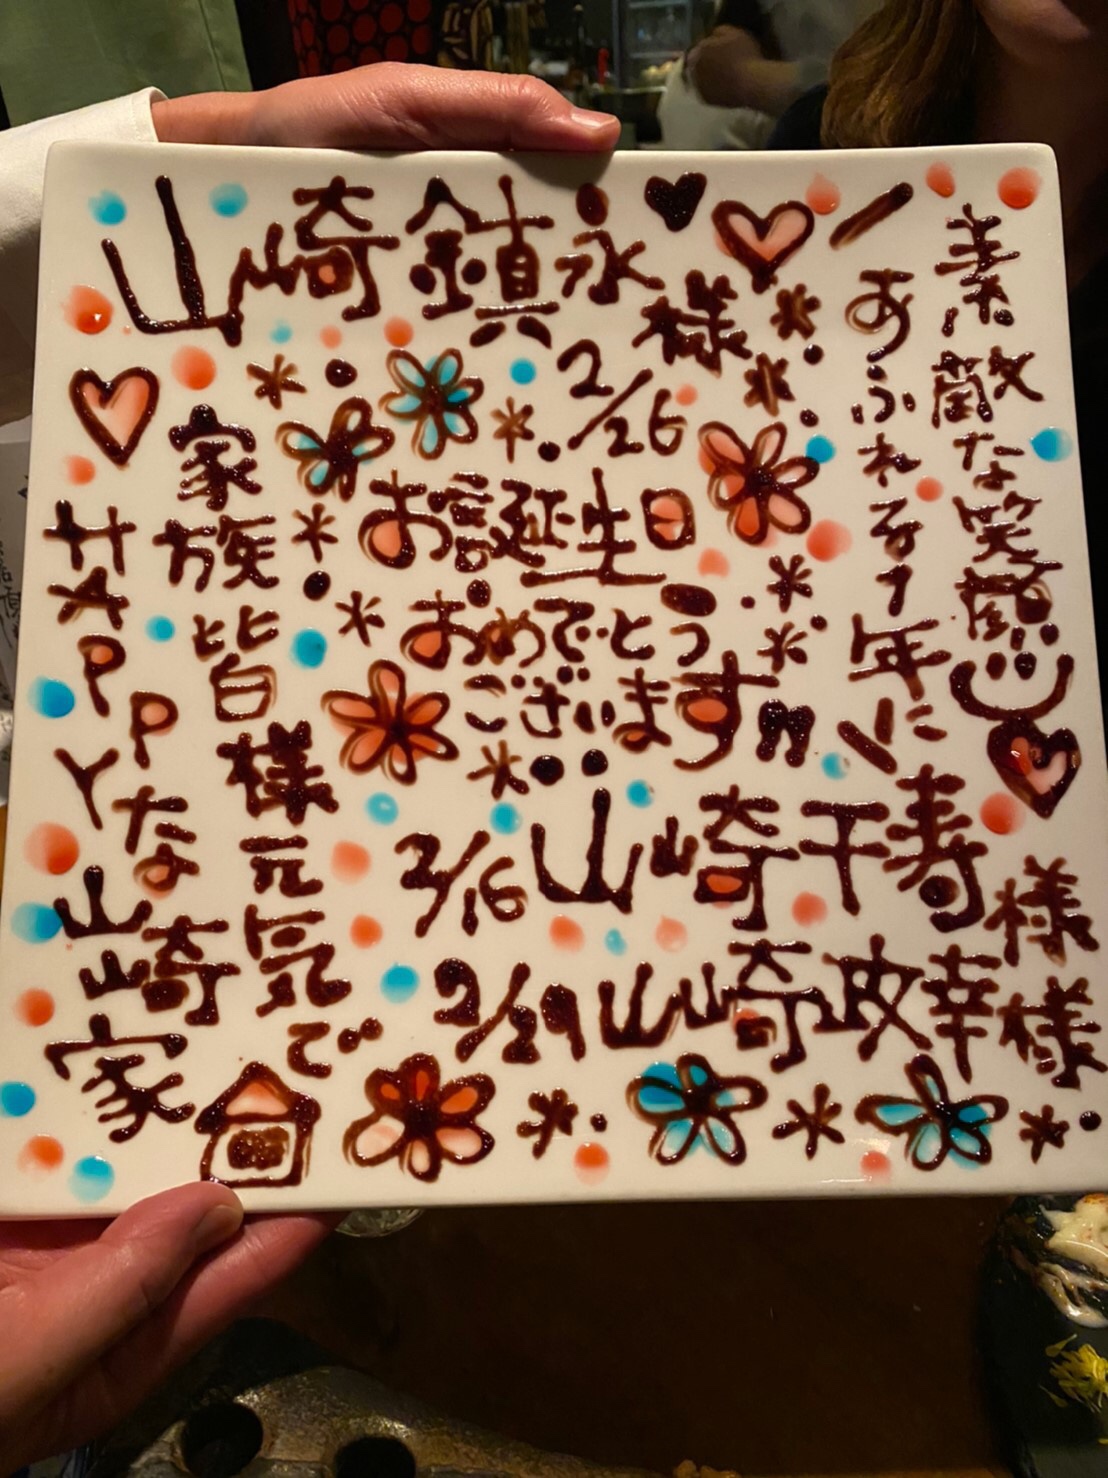 山崎鎮永様
2/26
お誕生日
おめでとう
ございます
2/16 山崎千寿様
2/29 山崎皮幸様
素敵な笑顔
あふれる1年に
家族皆様元気で
HAPPYな
山崎家